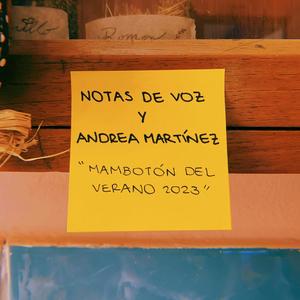 Romon
NOTAS DE VOZ
Y
ANDREA MARTÍNEZ
"MAMBOTÓN DEL
VERANO 2023"